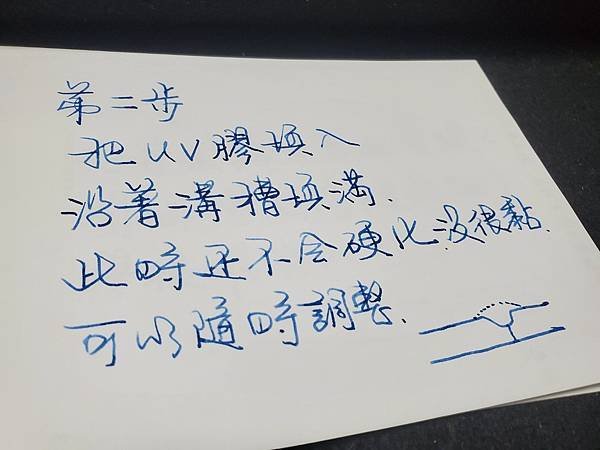 第二步
把UV膠填入
沿著溝槽填滿.
此時还不会硬化.没很黏.
可以隨時調整.